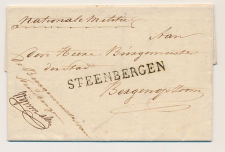 Nationale Militie
Aan
den Heere Burgemeester
der Stad
STEENBERGEN
Bergen op Zoom